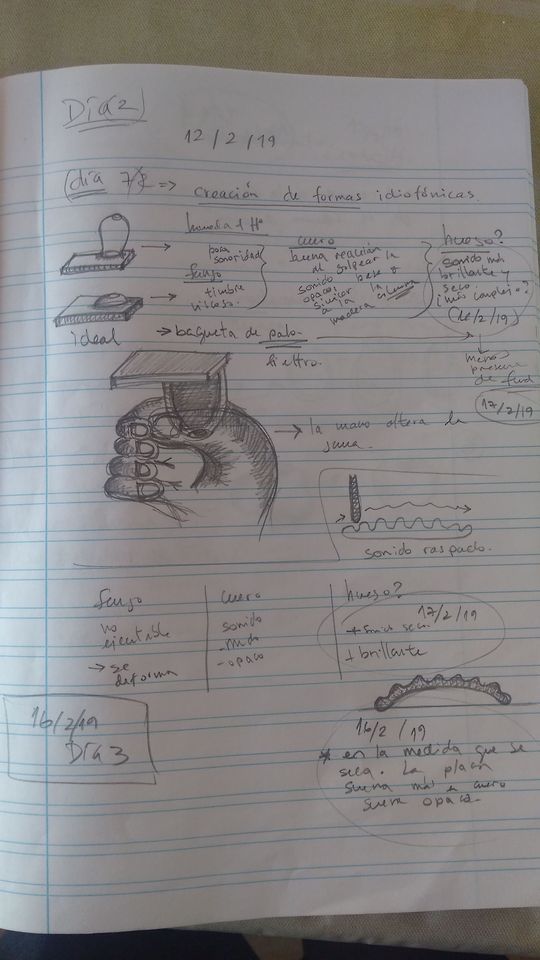 Día 2)
12 / 2 / 19
(día 7/2 => creación de formas idiofónicas.
poca sonoridad
fango
timbre
viscoso.
cuero
buena reacción
al golpear la
sonido pese a
opaco. la
similar columna
a la
madera
hueso?
sonido más
brillante y
seco.
¿más complejo?
(16/2/19)
ideal → baqueta de palo.
menos
presencia
de fund
17/2/19
→ la mano altera la
sonido raspado.
fango
no
ejecutable
→ se
deforma
cuero
sonido
-opaco
hueso?
17/2/19
+ brillante
16/2/19
DíA 3
16/2 /19
* en la medida que se
seca. La placa
suena más en cuero
suena opaca.